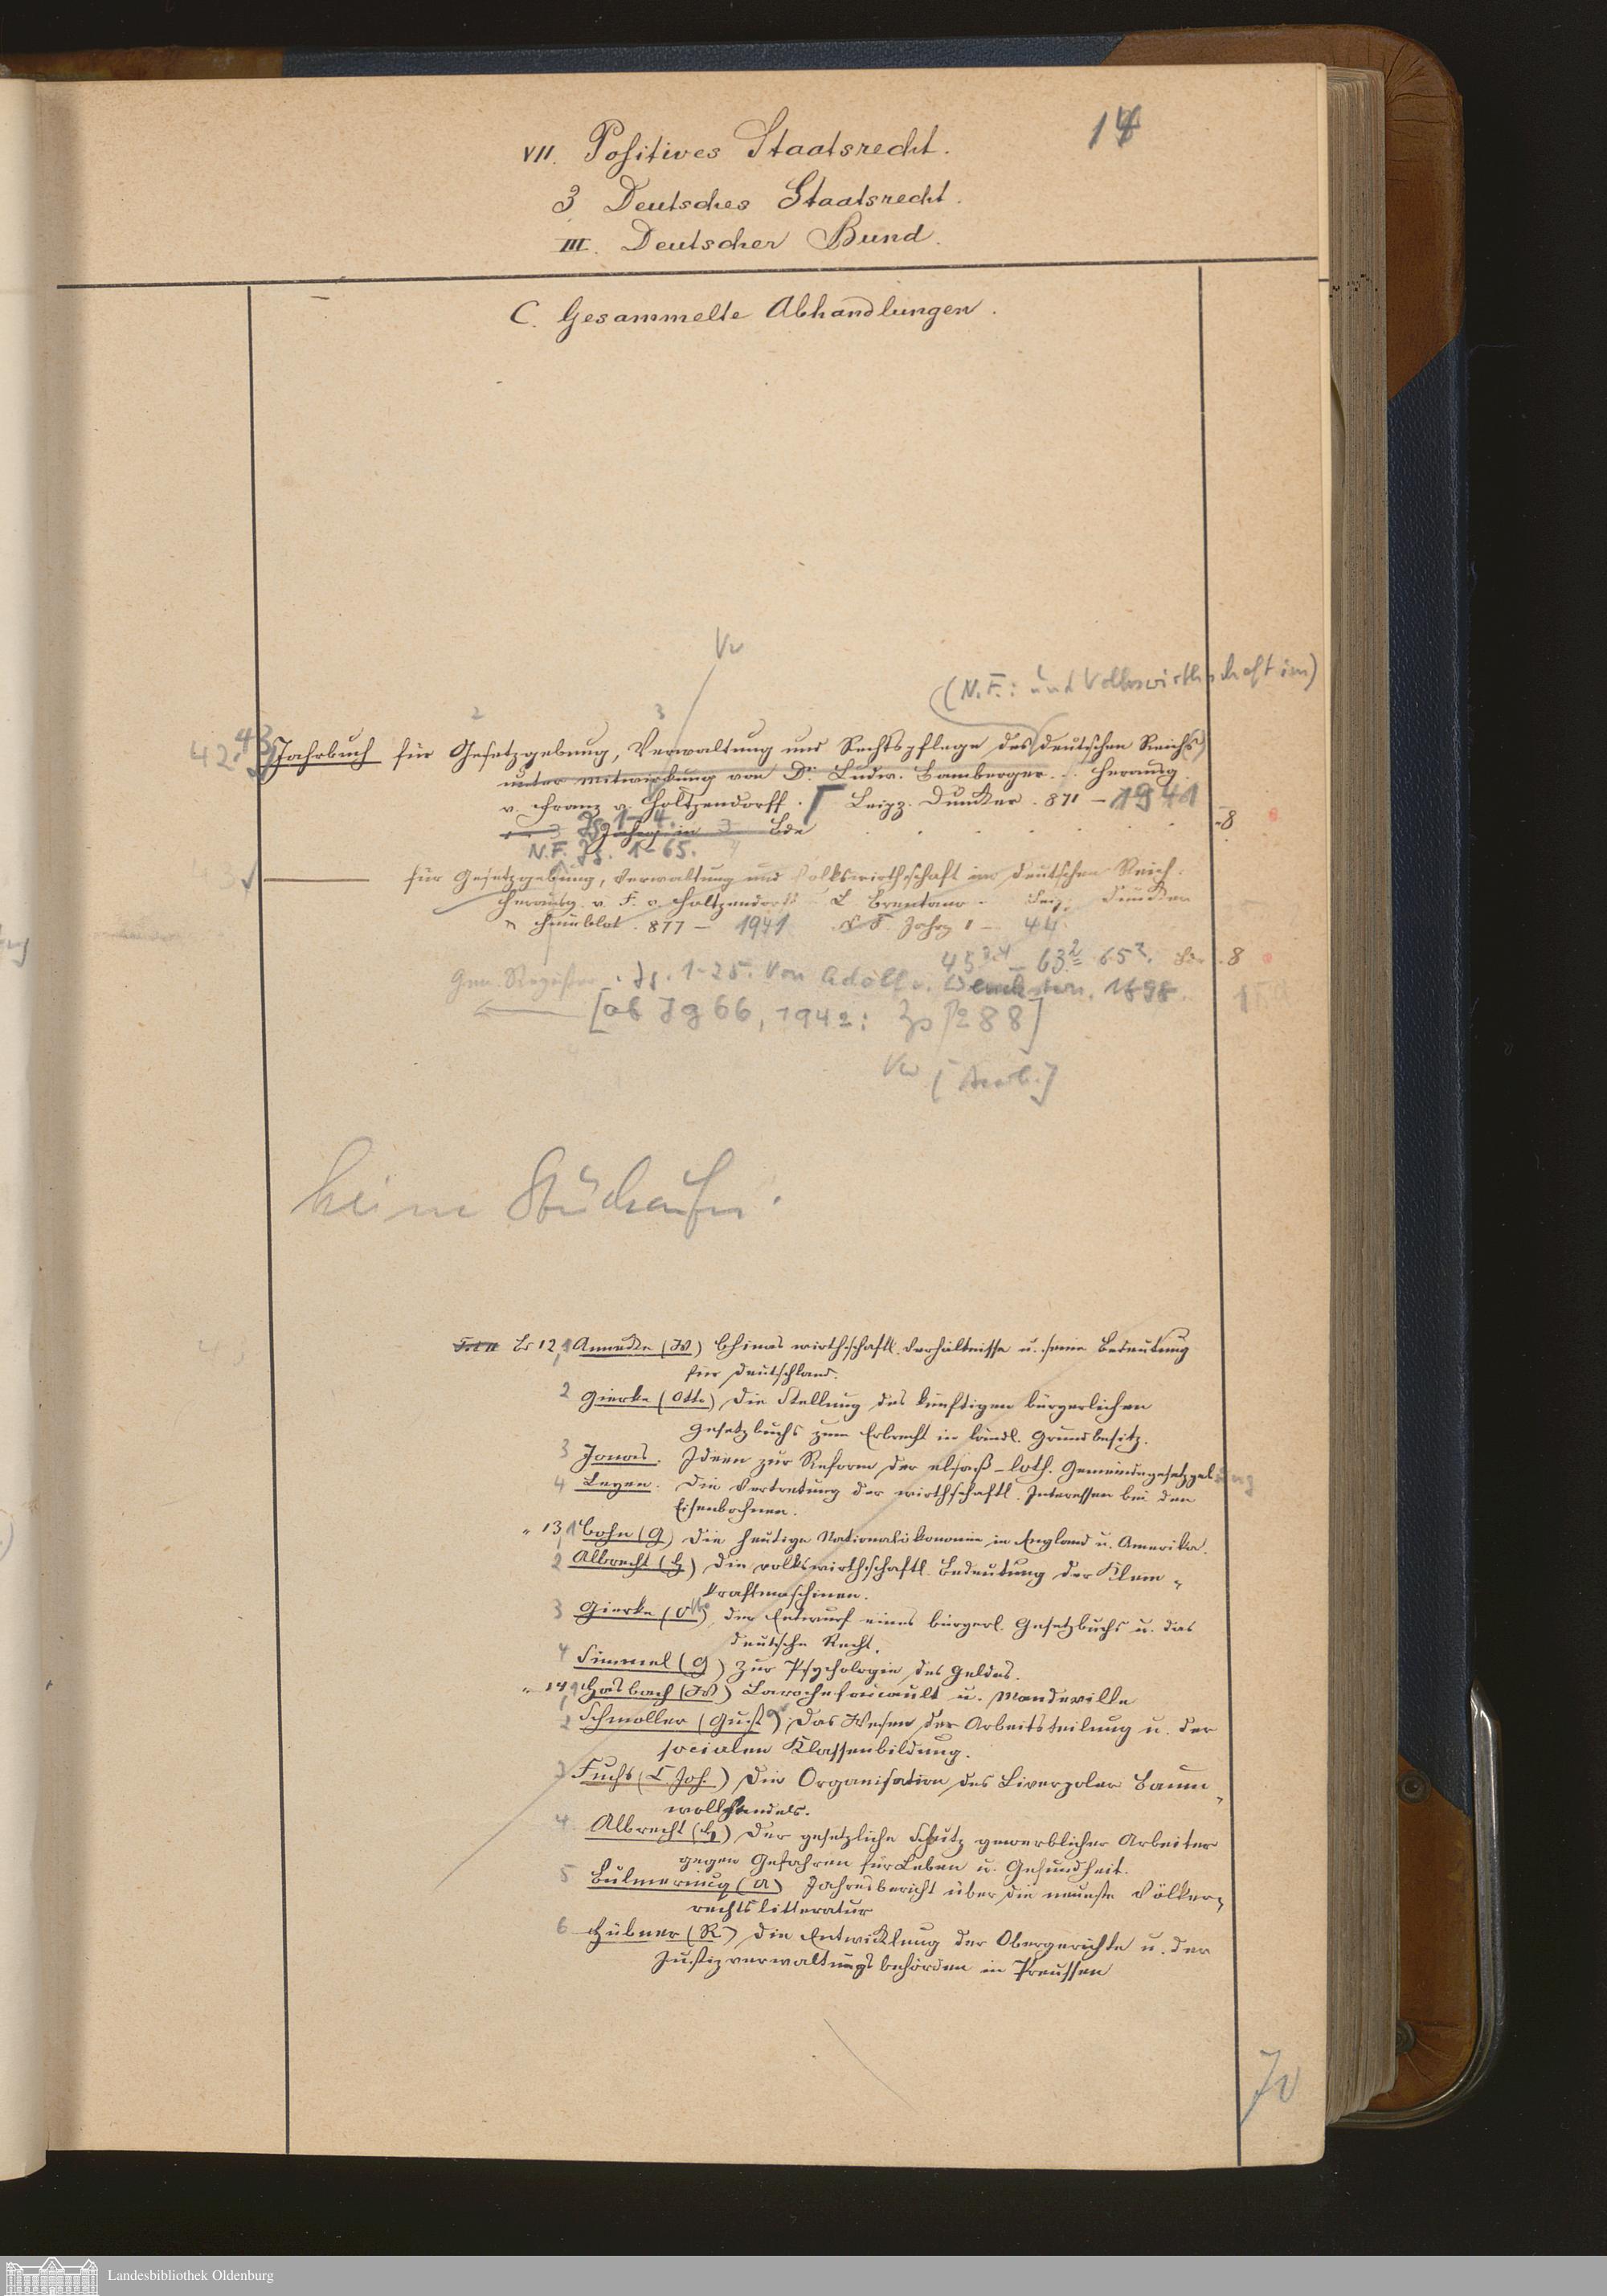 14
VII. Positives Staatsrecht.
3 Deutsches Staatsrecht.
III. Deutscher Bund.
C. Gesammelte Abhandlungen.
(N.F.: und Volkswirthschaft im)
2 3
42. 43 Jahrbuch für Gesetzgebung, Verwaltung und Rechtspflege des deutschen Reichs
unter Mitwirkung von Dr. Ludw. Bamberger . . herausg.
v. Franz v. Holtzendorff. Leipz. Duncker. 871 – 1941
Jg 1-4. Bde 8
N.F. Jg. 1-65.
für Gesetzgebung, Verwaltung und Volkswirthschaft im deutschen Reich.
Herausg. v. F. v. Holtzendorff – L Brentano. Leipz. Duncker
& Humblot. 877 – 1941 N. F. Jahrg 1 – 44.
45 3.4 – 63 2 65 2. Bde. 8
Gen. Register. Jg. 1-25. Von Adolf v. 1898.
[ab Jg 66, 1942: Zs 1288]
keine
Bd 12,1 Annecke (W) Chinas wirthschaftl. Verhältnisse u. seine Bedeutung
für Deutschland.
2 Gierke (Otto) Die Stellung des künftigen bürgerlichen
Gesetzbuchs zum Erbrecht in ländl. Grundbesitz.
3 Jonas. Ideen zur Reform der elsaß-loth. Gemeindegesetzgebung
4 Leyen. Die Vertretung der wirthschaftl. Interessen bei den
Eisenbahnen.
" 13,1 Cohn (G) Die heutige Nationalökonomie in England u. Amerika.
2 Albrecht (H) Die volkswirthschaftl. Bedeutung der Klein-
kraftmaschinen.
3 Gierke (Otto) Der Entwurf eines bürgerl. Gesetzbuchs u. das
deutsche Recht.
4 Simmel (G) Zur Psychologie des Geldes.
" 14,1 Hasbach (W) Larochefoucault u. Mandeville
2 Schmoller (Gust) Das Wesen der Arbeitsteilung u. der
socialen Klassenbildung.
3 Fuchs (C. Joh.) Die Organisation des Liverpoler Baum-
wollhandels.
4 Albrecht (H) Der gesetzliche Schutz gewerblicher Arbeiter
gegen Gefahren für Leben u. Gesundheit.
5 Bulmerincq (A) Jahresbericht über die neueste Völker-
rechtslitteratur
6 Hübner (R.) Die Entwicklung der Obergerichte u. der
Justizverwaltungsbehörden in Preussen
Landesbibliothek Oldenburg